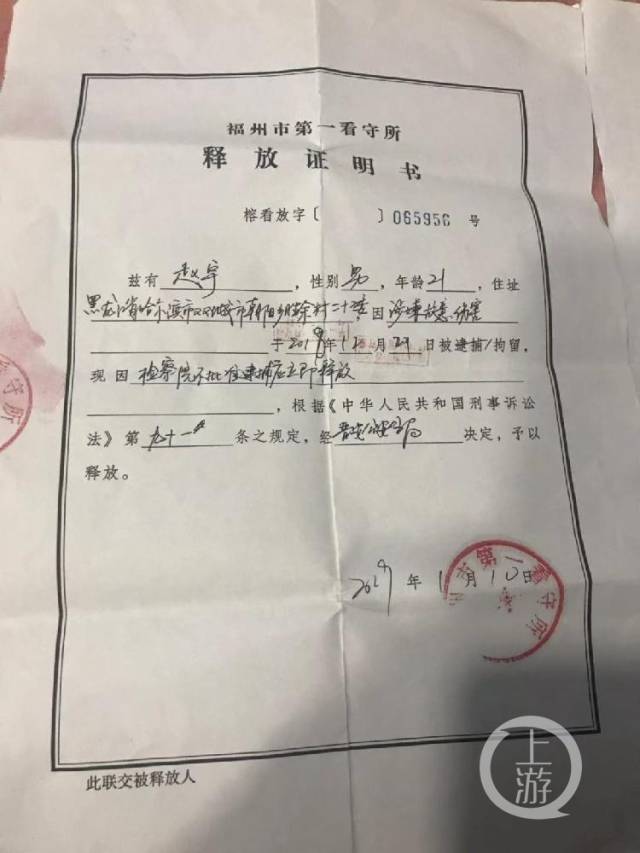 福州市第一看守所
释放证明书
榕看放字〔 〕065956 号
兹有 赵宇 ，性别 男 ，年龄 21 ，住址
黑龙江省哈尔滨市双城市朝阳乡胜余村二十委 因 涉嫌故意伤害
于 2018 年 12 月 29 日被逮捕/拘留，
现因 检察院不批准逮捕应立即释放
，根据《中华人民共和国刑事诉讼
法》第 九十一 条之规定，经 晋安公安分局 决定，予以
释放。
2019 年 1 月 10 日
市第一看守所
守所
此联交被释放人
上游